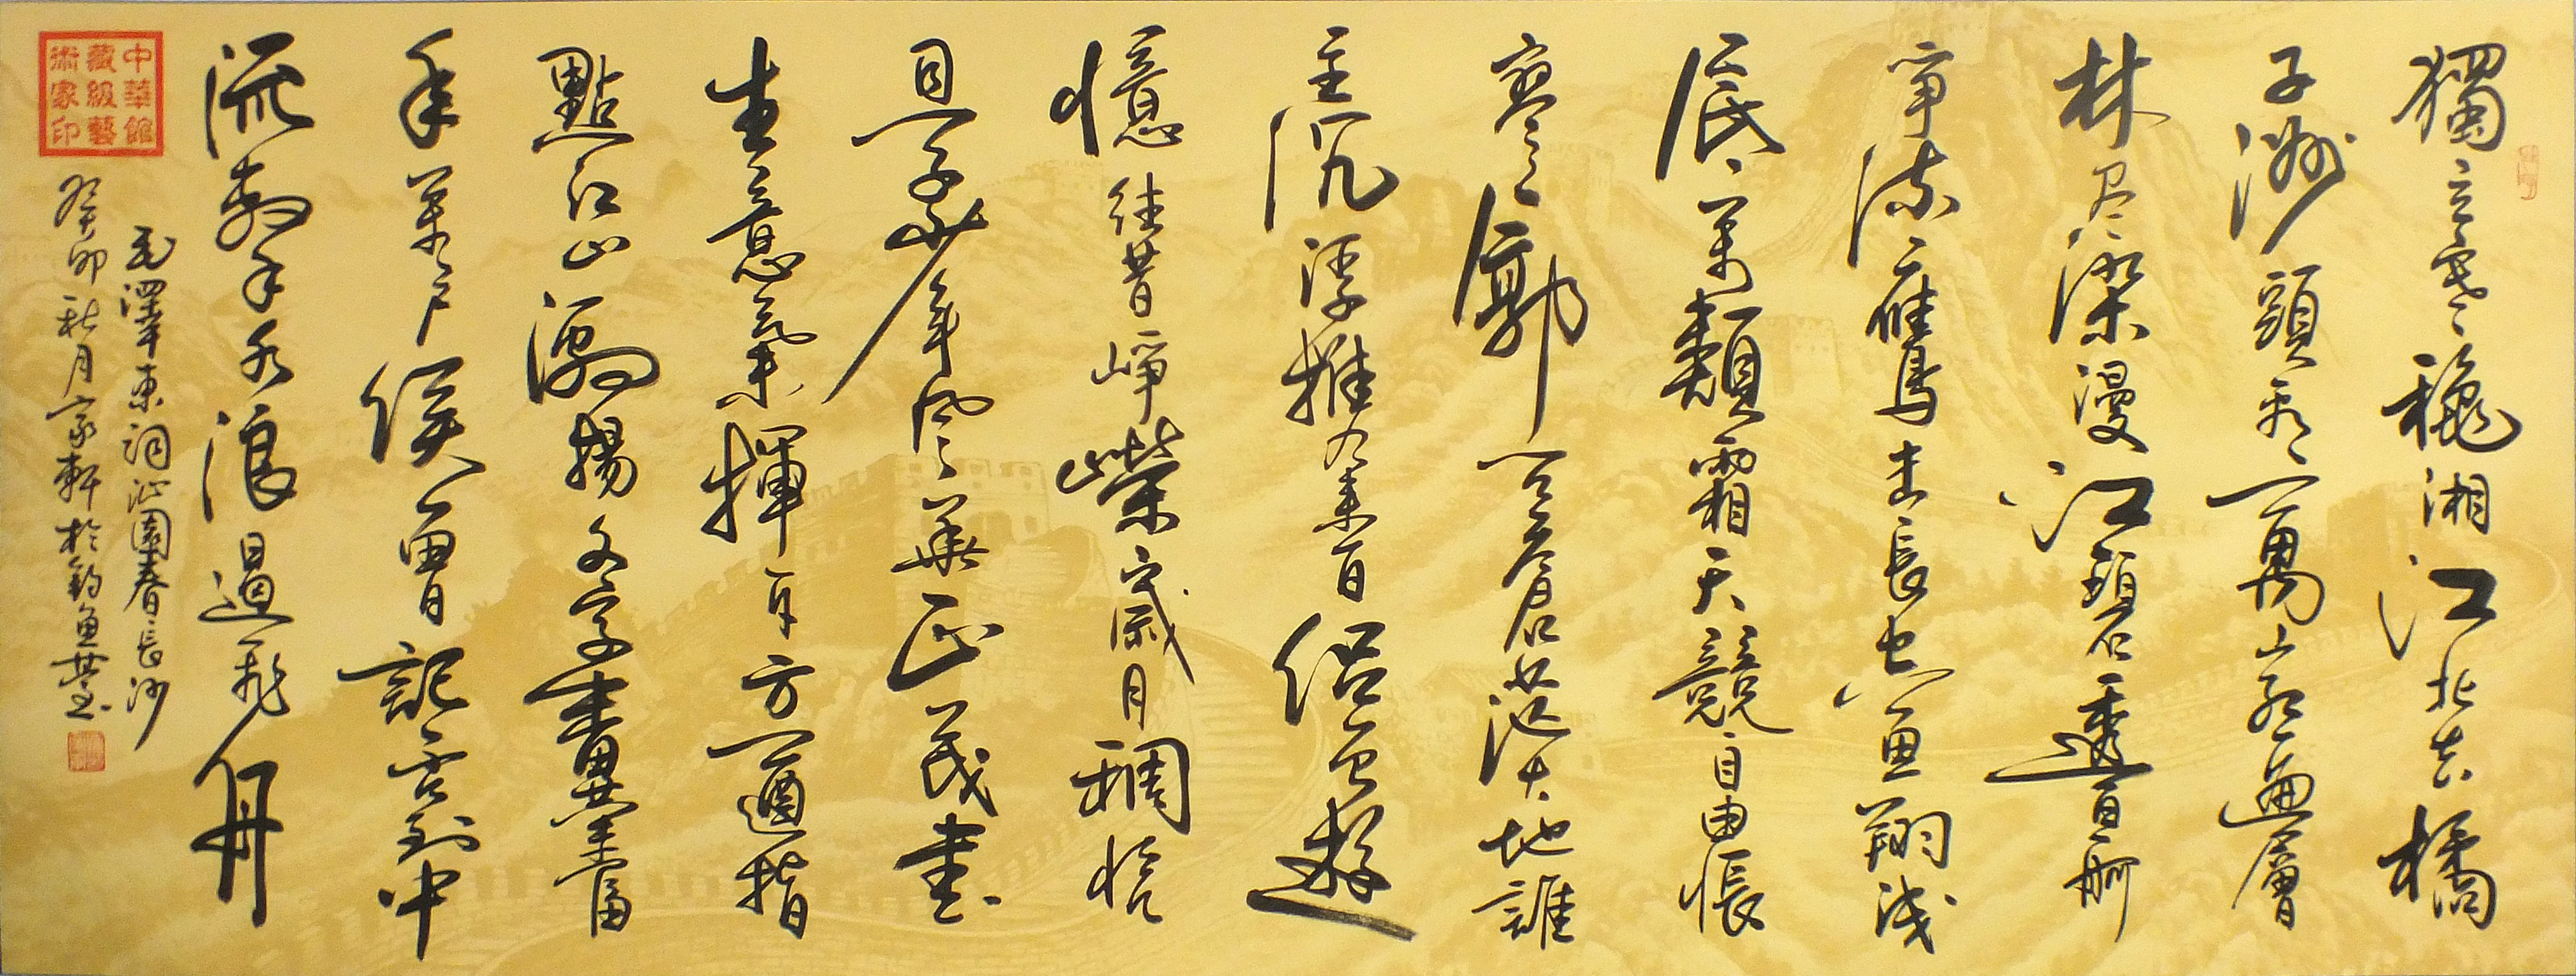 獨立寒穐湘江北去橘
子洲頭看萬山紅遍層
林尽染漫江碧透百舸
爭流鷹擊長空魚翔浅
底萬類霜天競自由悵
寥廓問蒼茫大地誰
主沉浮携來百侣曾遊
憶往昔崢嶸歲月稠恰
同學少年風華正茂書
生意氣揮斥方遒指
點江山激揚文字糞土當
年萬户侯曾記否到中
流擊水浪遏飛舟
毛澤東詞沁園春長沙
癸卯秋月家軒於釣魚臺书
中華館
藏級藝
術家印